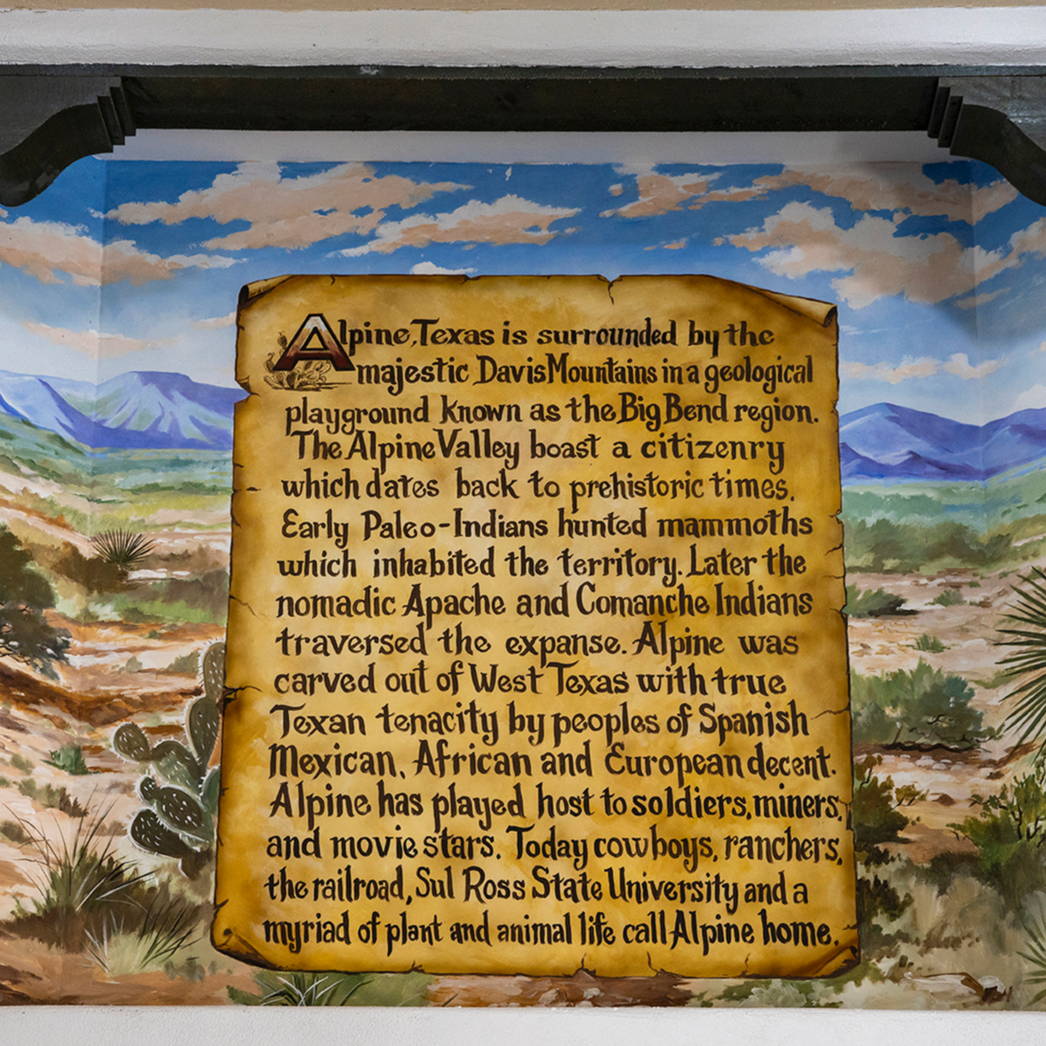 Alpine, Texas is surrounded by the
majestic Davis Mountains in a geological
playground known as the Big Bend region.
The Alpine Valley boast a citizenry
which dates back to prehistoric times.
Early Paleo-Indians hunted mammoths
which inhabited the territory. Later the
nomadic Apache and Comanche Indians
traversed the expanse. Alpine was
carved out of West Texas with true
Texan tenacity by peoples of Spanish
Mexican, African and European decent.
Alpine has played host to soldiers, miners,
and movie stars. Today cowboys, ranchers,
the railroad, Sul Ross State University and a
myriad of plant and animal life call Alpine home.